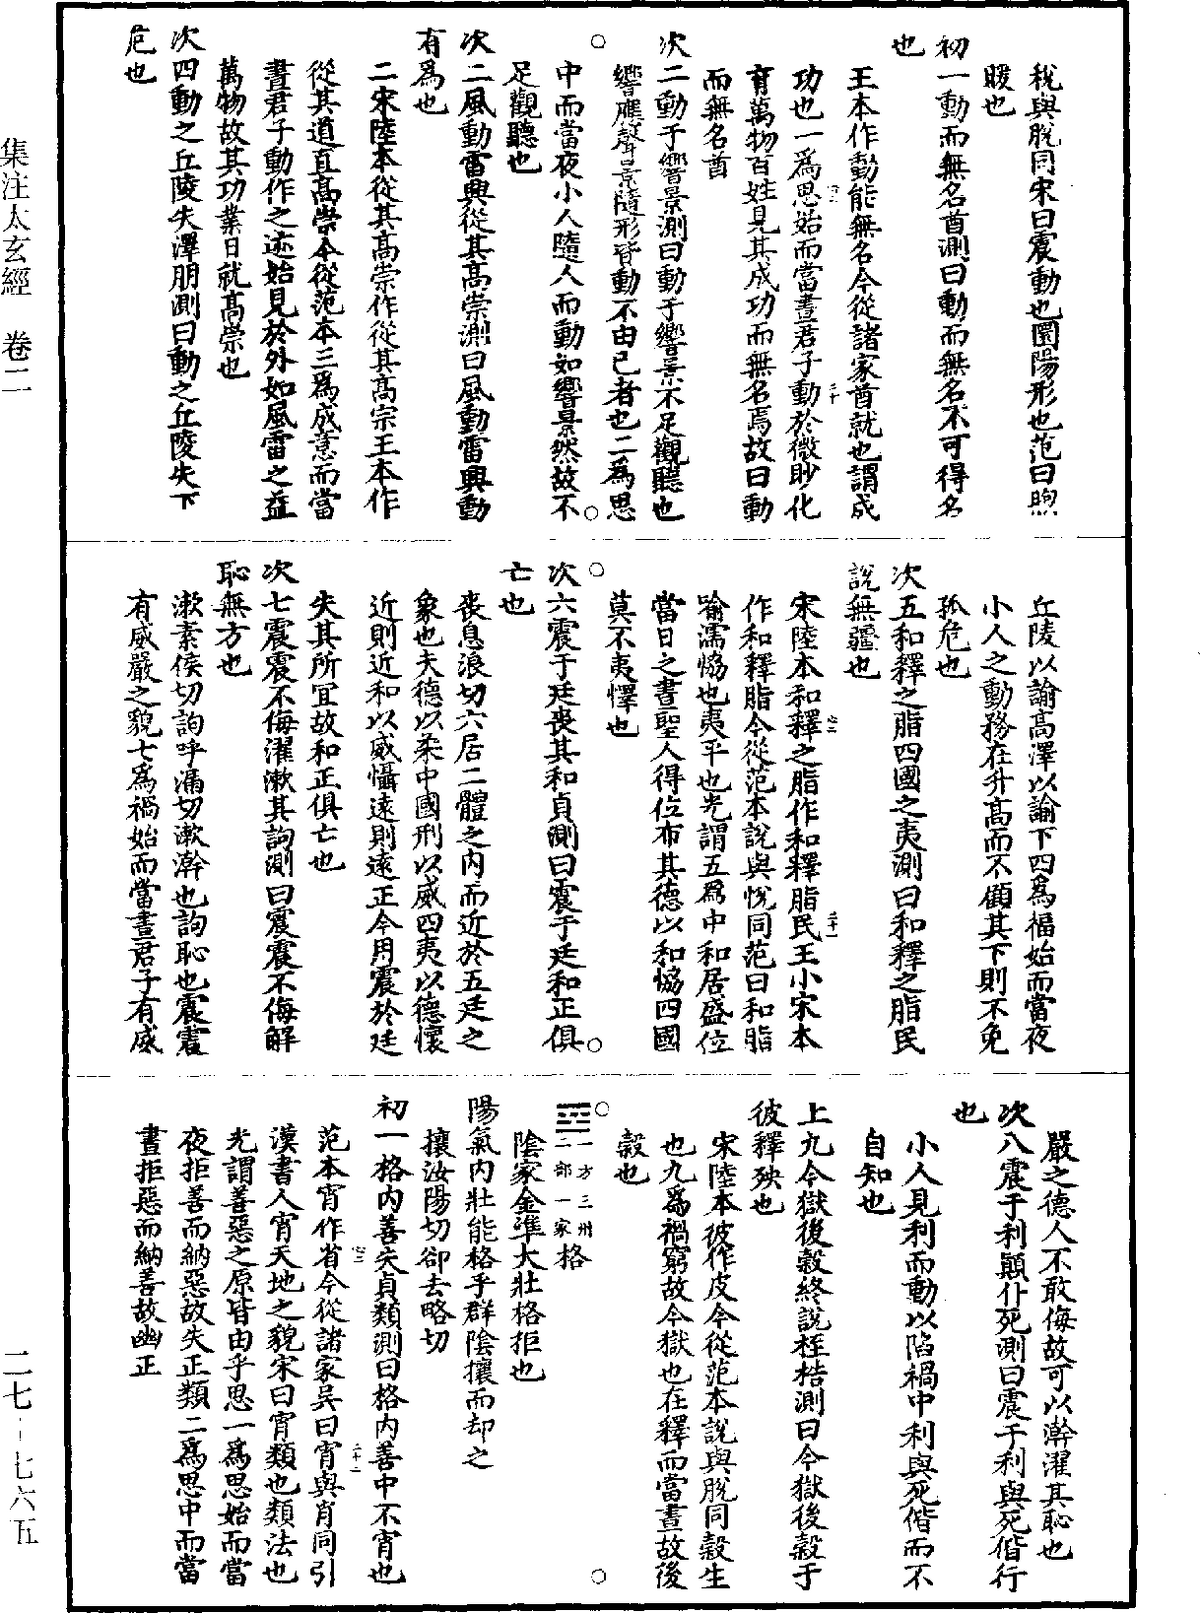 集注太玄經　卷二
二七－七六五
稅與脫同宋曰震動也圜陽形也范曰煦
暖也
初一動而無名酋測曰動而無名不可得名
也
王本作動能無名今從諸家酋就也謂成
功也一為思始而當晝君子動於微眇化
育萬物百姓見其成功而無名焉故曰動
而無名酋
次二動于響景測曰動于響景不足觀聽也
響應聲景隨形皆動不由已者也二為思
中而當夜小人隨人而動如響景然故不
足觀聽也
次二風動雷興從其高崇測曰風動雷興動
有為也
二宋陸本從其高崇作從其高宗王本作
從其道直高崇今從范本三為成意而當
晝君子動作之迹始見於外如風雷之益
萬物故其功業日就高崇也
次四動之丘陵失澤朋測曰動之丘陵失下
危也
丘陵以諭高澤以諭下四為福始而當夜
小人之動務在升高而不顧其下則不免
孤危也
次五和釋之脂四國之夷測曰和釋之脂民
說無疆也
宋陸本和釋之脂作和釋脂民王小宋本
作和釋脂今從范本說與悅同范曰和脂
喻濡恊也夷平也光謂五為中和居盛位
當日之晝聖人得位布其德以和恊四國
莫不夷懌也
次六震于廷喪其和貞測曰震于廷和正俱
亡也
喪息浪切六居二體之內而近於五廷之
象也夫德以柔中國刑以威四夷以德懷
近則近和以威懾遠則遠正今用震於廷
失其所宜故和正俱亡也
次七震震不侮濯漱其詢測曰震震不侮解
恥無方也
漱素侯切詢呼漏切漱澣也詢恥也震震
有威嚴之貌七為禍始而當晝君子有威
嚴之德人不敢侮故可以澣濯其恥也
次八震于利顛仆死測曰震于利與死偕行
也
小人見利而動以陷禍中利與死偕而不
自知也
上九今獄後穀終說桎梏測曰今獄後穀于
彼釋殃也
宋陸本彼作皮今從范本說與脫同穀生
也九為禍窮故今獄也在釋而當晝故後
穀也
一方三州
二部一家
格
陰家金準大壯格拒也
陽氣內壯能格乎群陰攘而却之
攘汝陽切卻去略切
初一格內善失貞類測曰格內善中不宵也
范本宵作省今從諸家吳曰宵與肖同引
漢書人宵天地之貌宋曰宵類也類法也
光謂善惡之原皆由乎思一為思始而當
夜拒善而納惡故失正類二為思中而當
晝拒惡而納善故幽正